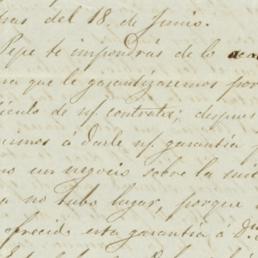 tras del 18. de Junio.
Pepe te impondrás de lo
na que le garantizasemos por
ículo de nȓ. contrata; despues
cimos á darle nȓ. garantía p
no un negocio sobre la mi
a no tubo lugar, porque
ofrecido esta garantía á Dn